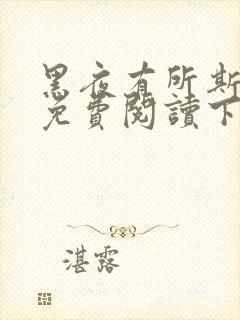 黑夜有所斯
免費閱讀下
湛露